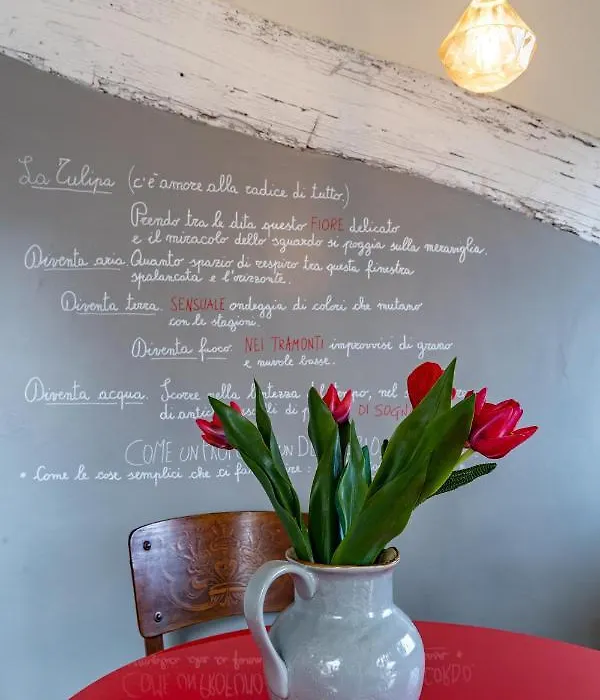 La Tulipa (c'è amore alla radice di tutto.)
Prendo tra le dita questo FIORE delicato
e il miracolo dello sguardo si poggia sulla meraviglia.
Diventa aria. Quanto spazio di respiro tra questa finestra
spalancata e l'orizzonte.
Diventa terra. SENSUALE ondeggia di colori che mutano
con le stagioni.
Diventa fuoco. NEI TRAMONTI improvvisi di grano
e nuvole basse.
Diventa acqua. Scorre nella del tempo, nel
di DI SOGNO
COME UN UN
• Come le cose semplici che ci fanno :